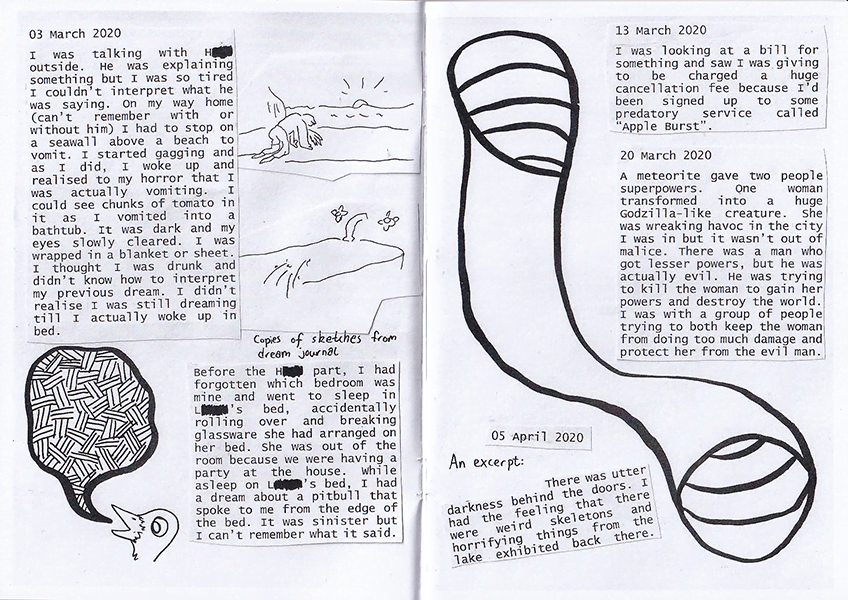 03 March 2020
I was talking with H
outside. He was explaining
something but I was so tired
I couldn't interpret what he
was saying. On my way home
(can't remember with or
without him) I had to stop on
a seawall above a beach to
vomit. I started gagging and
as I did, I woke up and
realised to my horror that I
was actually vomiting. I
could see chunks of tomato in
it as I vomited into a
bathtub. It was dark and my
eyes slowly cleared. I was
wrapped in a blanket or sheet.
I thought I was drunk and
didn't know how to interpret
my previous dream. I didn't
realise I was still dreaming
till I actually woke up in
bed.
Copies of sketches from
dream journal
Before the H part, I had
forgotten which bedroom was
mine and went to sleep in
L's bed, accidentally
rolling over and breaking
glassware she had arranged on
her bed. She was out of the
room because we were having a
party at the house. While
asleep on L's bed, I had
a dream about a pitbull that
spoke to me from the edge of
the bed. It was sinister but
I can't remember what it said.
13 March 2020
I was looking at a bill for
something and saw I was giving
to be charged a huge
cancellation fee because I'd
been signed up to some
predatory service called
"Apple Burst".
20 March 2020
A meteorite gave two people
superpowers. One woman
transformed into a huge
Godzilla-like creature. She
was wreaking havoc in the city
I was in but it wasn't out of
malice. There was a man who
got lesser powers, but he was
actually evil. He was trying
to kill the woman to gain her
powers and destroy the world.
I was with a group of people
trying to both keep the woman
from doing too much damage and
protect her from the evil man.
05 April 2020
An excerpt:
There was utter
darkness behind the doors. I
had the feeling that there
were weird skeletons and
horrifying things from the
lake exhibited back there.